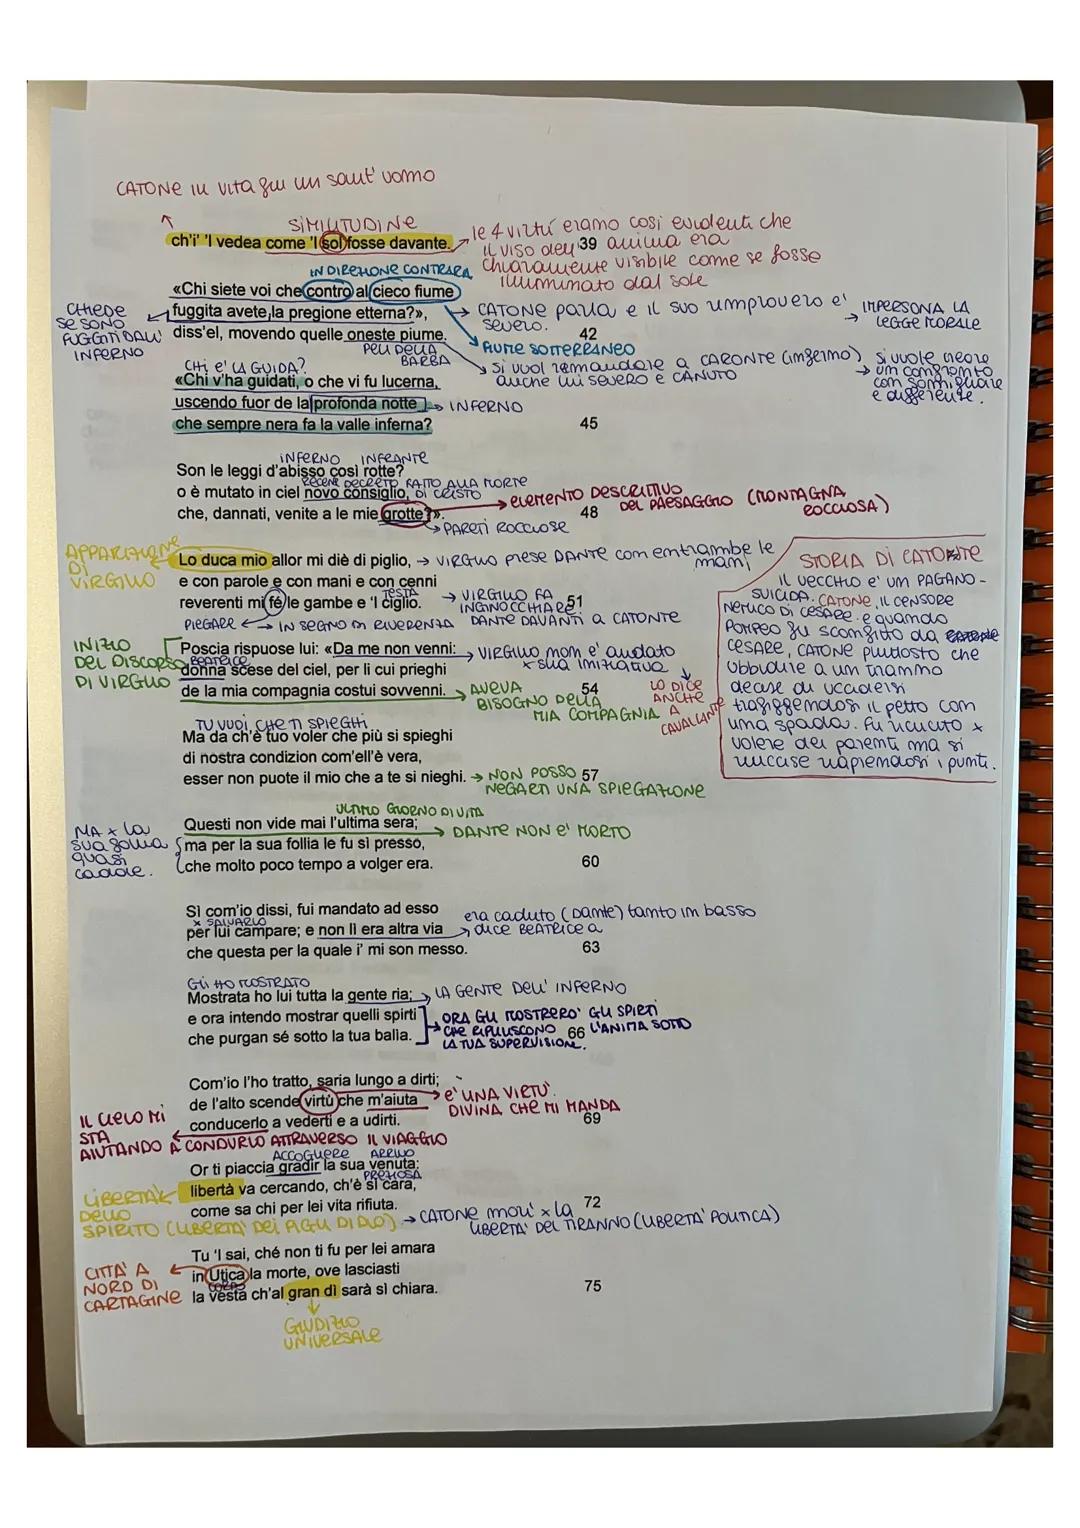 CATONE IN VITA fu un sant' uomo
SIMILITUDINE
ch'i' 'l vedea come 'l sol fosse davante.
39
le 4 virtù erano così evidenti che
il viso dell' anima era
chiaramente visibile come se fosse
illuminato dal sole
IN DIREZIONE CONTRARIA
«Chi siete voi che contro al cieco fiume
fuggita avete la pregione etterna?»,
diss'el, movendo quelle oneste piume.
42
CHIEDE
SE SONO
FUGGITI DALL'
INFERNO
CATONE parla e il suo rimprovero e'
severo.
IMPERSONA LA
LEGGE MORALE
FIUME SOTTERRANEO
PELI DELLA
BARBA
si vuol remandare a CARONTE (inferno)
anche lui severo e CANUTO
si vuole creare
un confronto
con somigliare
e differente.
CHI E' LA GUIDA?
«Chi v'ha guidati, o che vi fu lucerna,
uscendo fuor de la profonda notte
INFERNO
che sempre nera fa la valle inferna?
45
INFERNO INFRANTE
Son le leggi d'abisso così rotte?
RECENE DECRETO FATTO ALLA MORTE
DI CRISTO
o è mutato in ciel novo consiglio,
che, dannati, venite a le mie grotte?».
48
ELEMENTO DESCRITTIVO
DEL PAESAGGIO (MONTAGNA
ROCCIOSA)
PARETI ROCCIOSE
APPARIZIONE
DI
VIRGILIO
Lo duca mio allor mi diè di piglio,
VIRGILIO PRESE DANTE con entrambe le
mani
e con parole e con mani e con cenni
TESTA
reverenti mi fé le gambe e 'l ciglio.
51
VIRGILIO FA
INGINOCCHIARE
DANTE DAVANTI a CATONTE
PIEGARE
IN SEGNO DI RIVERENZA
STORIA DI CATONTE
IL VECCHIO e' UM PAGANO -
SUICIDA. CATONE, IL CENSORE
NEMICO DI CESARE. e quando
POMPEO fu sconfitto da
CESARE, CATONE piuttosto che
ubbidire a un tiranno
decise di uccidersi
trafiggendosi il petto con
una spada. fu ricucito x
volere dei parenti ma si
riuccise riaprendosi i punti.
INIZIO
DEL DISCORSO
DI VIRGILIO
Poscia rispuose lui: «Da me non venni:
VIRGILIO non e' andato
x sua iniziativa
BEATRICE
donna scese del ciel, per li cui prieghi
de la mia compagnia costui sovvenni.
54
AVEVA
BISOGNO DELLA
MIA COMPAGNIA
LO DICE
ANCHE
A
CAVALCANTE
TU VUOI CHE TI SPIEGHI
Ma da ch'è tuo voler che più si spieghi
di nostra condizion com'ell'è vera,
esser non puote il mio che a te si nieghi.
57
NON POSSO
NEGARTI UNA SPIEGAZIONE
ULTIMO GIORNO DI VITA
Questi non vide mai l'ultima sera;
DANTE NON E' MORTO
ma per la sua follia le fu sì presso,
che molto poco tempo a volger era.
60
MA x la
sua follia
quasi
cadde.
Sì com'io dissi, fui mandato ad esso
x SALVARLO
per lui campare; e non lì era altra via
era caduto (Dante) tanto in basso
dice BEATRICE a
che questa per la quale i' mi son messo.
63
GLI HO MOSTRATO
Mostrata ho lui tutta la gente ria;
LA GENTE DELL' INFERNO
e ora intendo mostrar quelli spirti
che purgan sé sotto la tua balìa.
66
ORA GLI MOSTRERO' GLI SPIRTI
CHE RIPULISCONO L'ANIMA SOTTO
LA TUA SUPERVISIONE.
Com'io l'ho tratto, saria lungo a dirti;
de l'alto scende virtù che m'aiuta
E' UNA VIRTU'
DIVINA CHE MI MANDA
conducerlo a vederti e a udirti.
69
IL CIELO MI
STA
AIUTANDO A CONDURLO ATTRAVERSO IL VIAGGIO
ACCOGLIERE ARRIVO
Or ti piaccia gradir la sua venuta:
PREZIOSA
libertà va cercando, ch'è sì cara,
come sa chi per lei vita rifiuta.
72
LIBERTA'
DELLO
SPIRITO (LIBERTA' DEI FIGLI DI DIO)
CATONE morì x la
LIBERTA' DEL TIRANNO (LIBERTA' POLITICA)
Tu 'l sai, ché non ti fu per lei amara
in Utica la morte, ove lasciasti
CORPO
la vesta ch'al gran dì sarà sì chiara.
75
CITTA' A
NORD DI
CARTAGINE
GIUDIZIO
UNIVERSALE